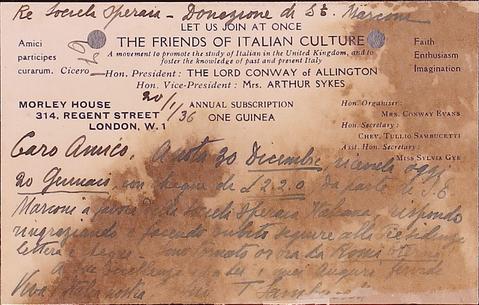 Re Società Operaia - Donazione di S.E. Marconi
LET US JOIN AT ONCE
Amici participes curarum. Cicero
THE FRIENDS OF ITALIAN CULTURE
Faith Enthusiasm Imagination
A movement to promote the study of Italian in the United Kingdom, and to
foster the knowledge of past and present Italy
Hon. President: THE LORD CONWAY of ALLINGTON
Hon. Vice-President: Mrs. ARTHUR SYKES
MORLEY HOUSE
314, REGENT STREET
LONDON, W.1
20/1/36
ANNUAL SUBSCRIPTION
ONE GUINEA
Hon. Organiser:
MRS. CONWAY EVANS
Hon. Secretary:
CHEV. TULLIO SAMBUCETTI
Asst. Hon. Secretary:
MISS SYLVIA GYE
Caro Amico, A nota 20 Dicembre ricevuta oggi
20 Gennaio, con cheque di £2.2.0. da parte di S.E.
Marconi a favore della Società Operaia Italiana, rispondo
ringraziando e facendo subito seguire alla Presidenza
lettera e cheque. ora da Roma
A Sua Eccellenza auguri
Viva